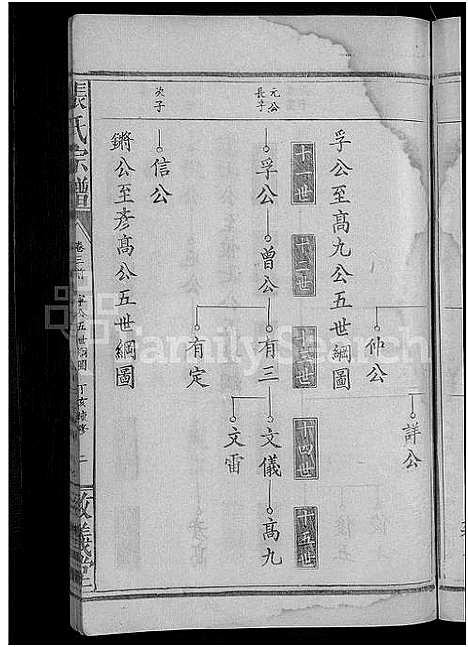 詳公
仲公
孚公至高九公五世綱圖
十一世
十二世
十三世
十四世
十五世
元公
長子
孚公
曾公
有三
文儀
高九
文雷
有定
次子
信公
鏘公至彥高公五世綱圖
張氏宗譜
卷三首
五世綱圖
敦義堂
FamilySearch